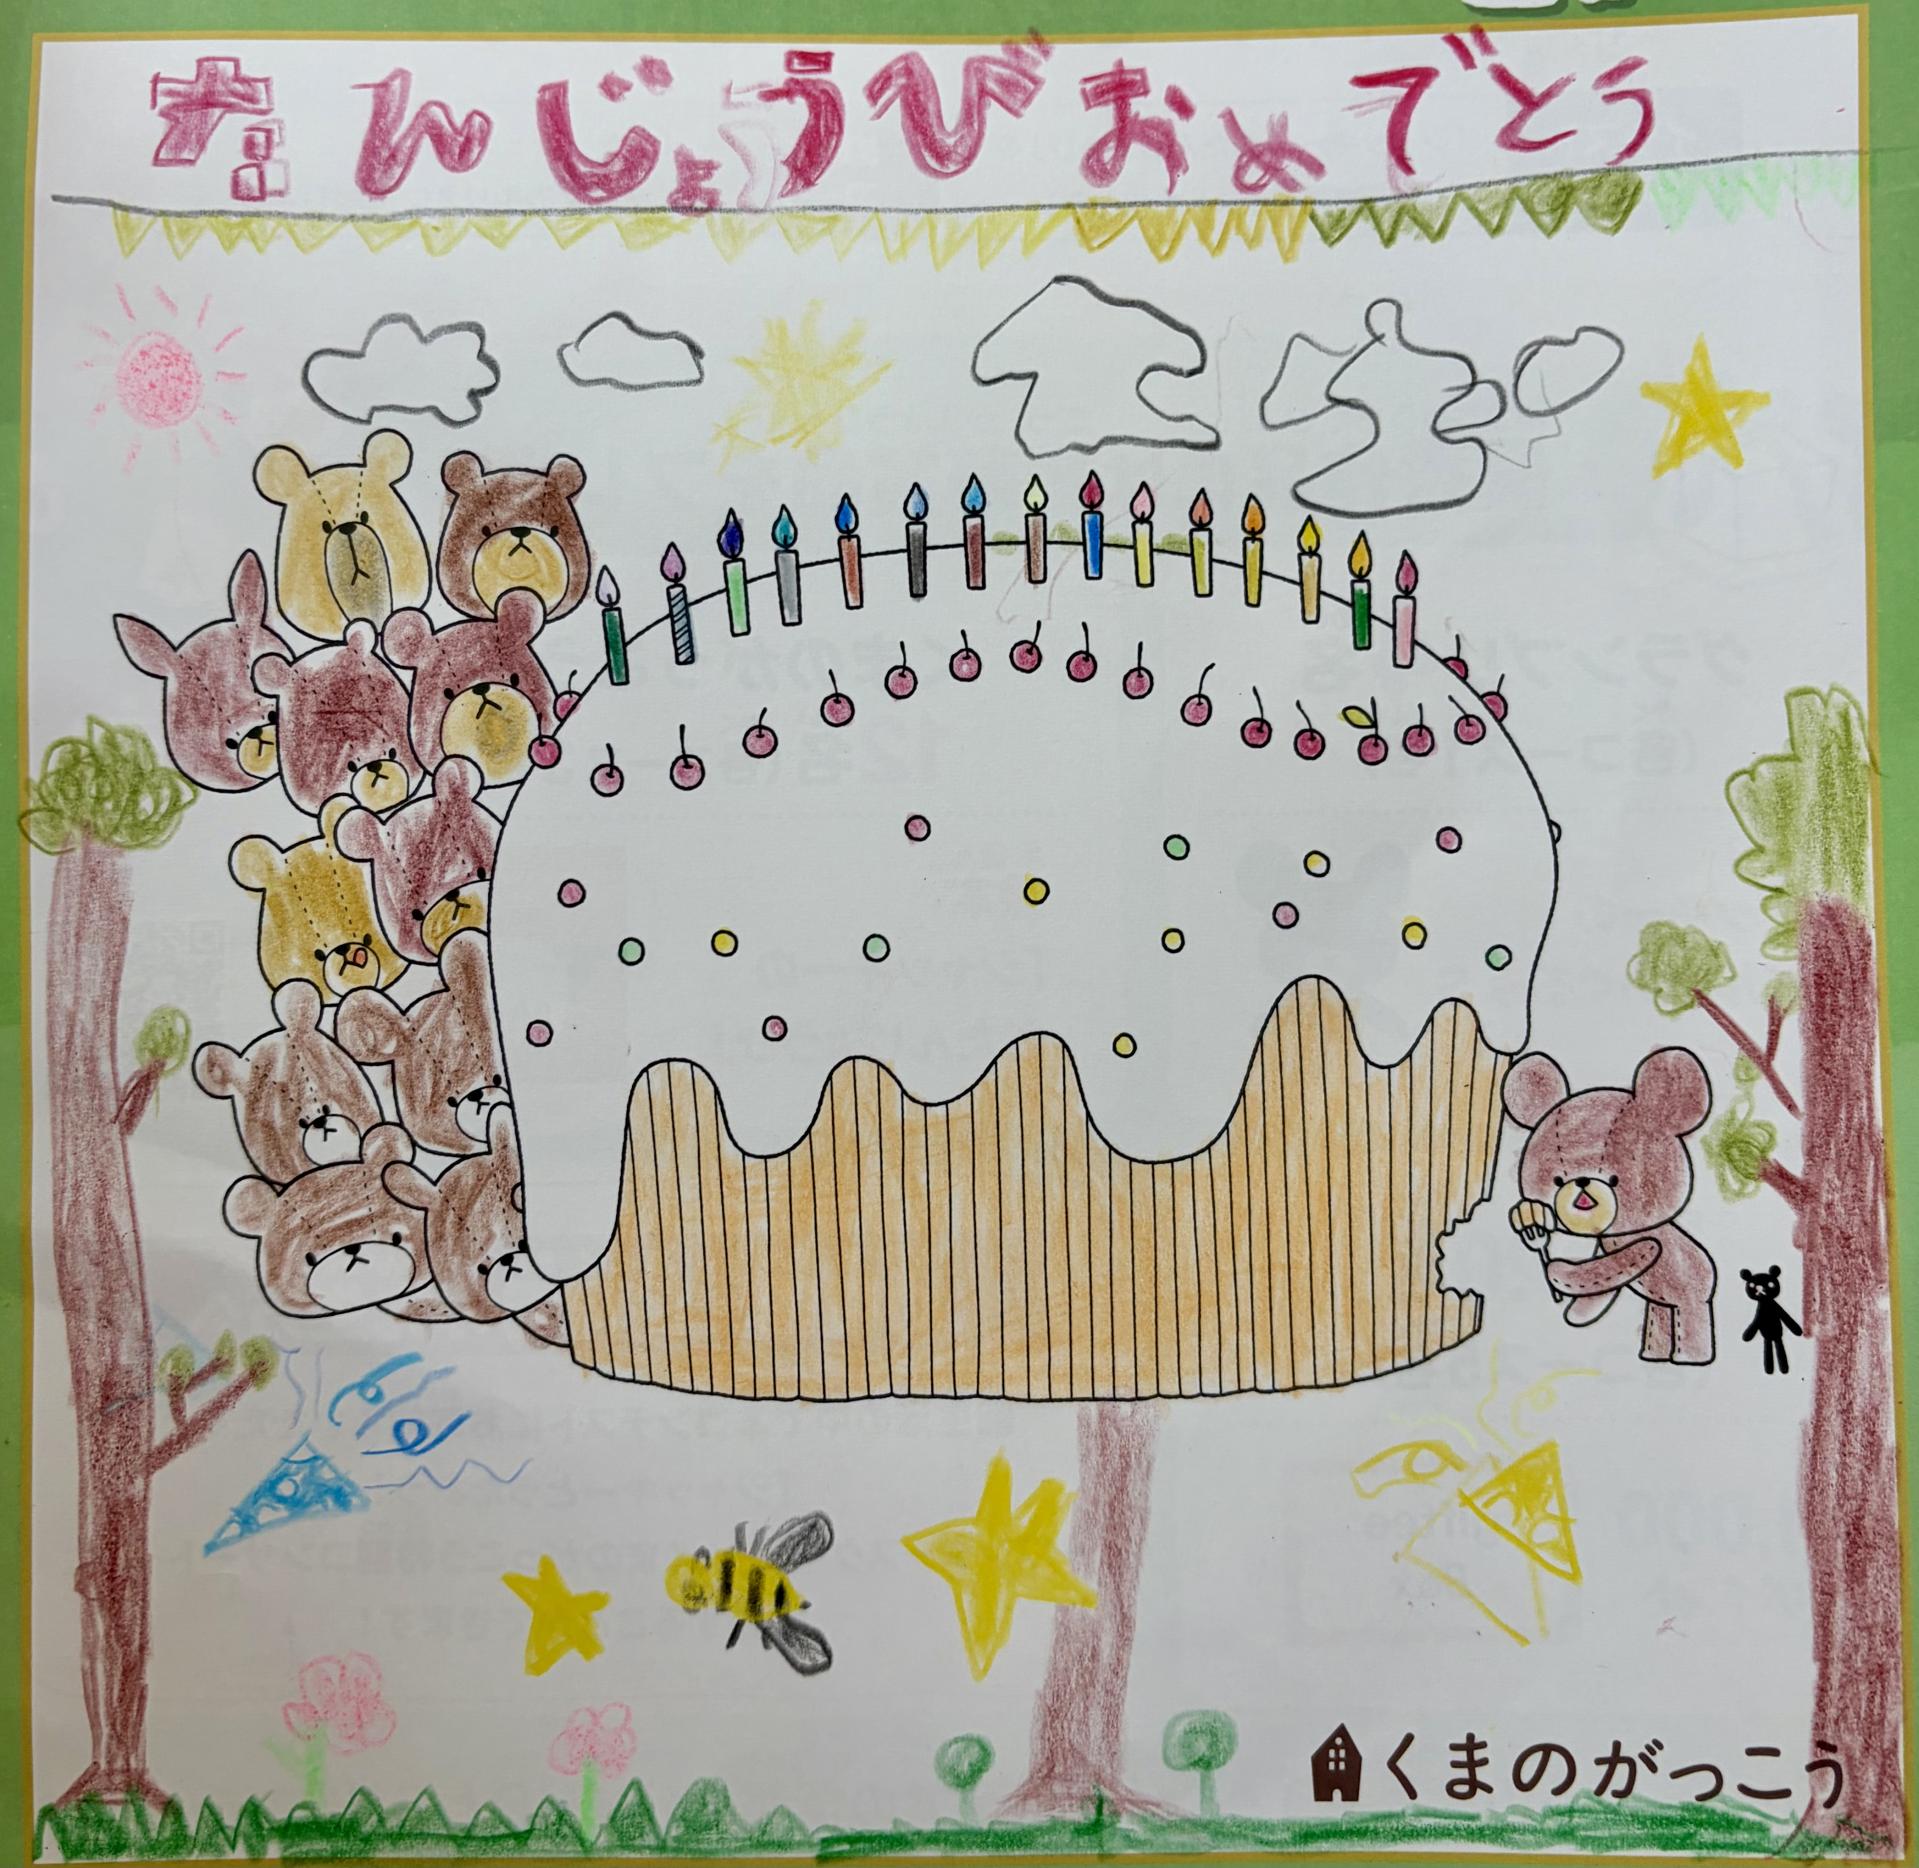 たんじょうびおめでとう
くまのがっこう